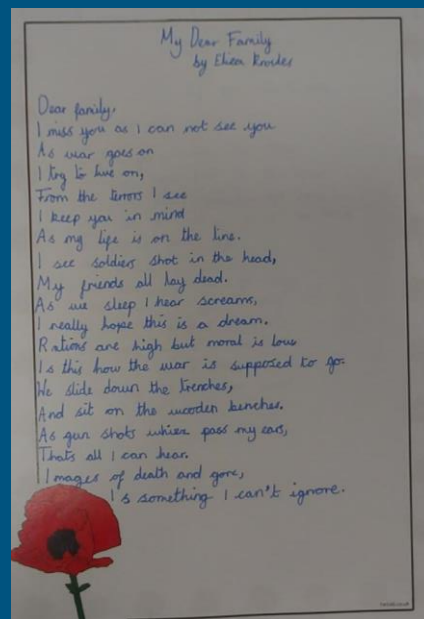 My Dear Family
by Eliza
Dear family,
I miss you as I can not see you
As war goes on
I try to live on,
From the terrors I see
I keep you in mind
As my life is on the line.
I see soldiers shot in the head,
My friends all lay dead.
As we sleep I hear screams,
I really hope this is a dream.
Rations are high but moral is low
Is this how the war is supposed to go.
We slide down the trenches,
And sit on the wooden benches.
As gun shots pass my ears,
Thats all I can hear.
Images of death and gore,
Is something I can't ignore.